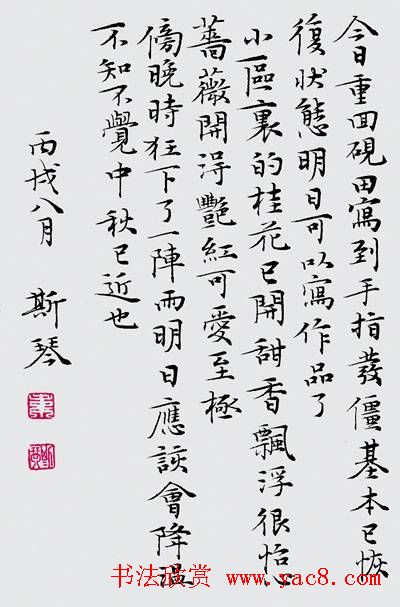 今日重面硯田寫到手指發僵基本已恢
復狀態明日可以寫作品了
小區裏的桂花已開甜香飄浮很怡心
薔薇開得艷紅可愛至極
傍晚時狂下了一陣雨明日應該會降温
不知不覺中秋已近也
丙戌八月 斯琴
书法欣赏 www.yac8.com